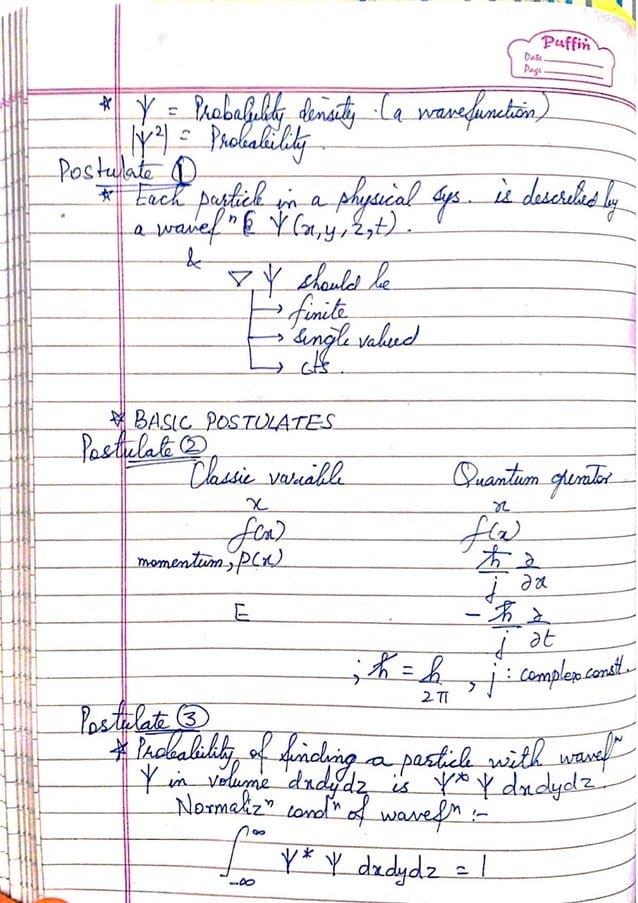 Puffin
Date
Page
* Ψ = Probability density (a wavefunction)
|Ψ²| = Probability.
Postulate ①
* Each particle in a physical sys. is described by
a wavefⁿ Ψ(x,y,z,t).
&
▽ Ψ should be
→ finite
→ single valued
→ cts.
* BASIC POSTULATES
Postulate ②
Classic variable Quantum operator
x x
f(x) f(x)
momentum, P(x) ħ/j ∂/∂x
E -ħ/j ∂/∂t
; ħ = h/2π , j : complex constt.
Postulate ③
* Probability of finding a particle with wavefⁿ
Ψ in volume dxdydz is Ψ* Ψ dxdydz.
Normalizⁿ condⁿ of wavefⁿ :-
∫_{-∞}^{∞} Ψ* Ψ dxdydz = 1